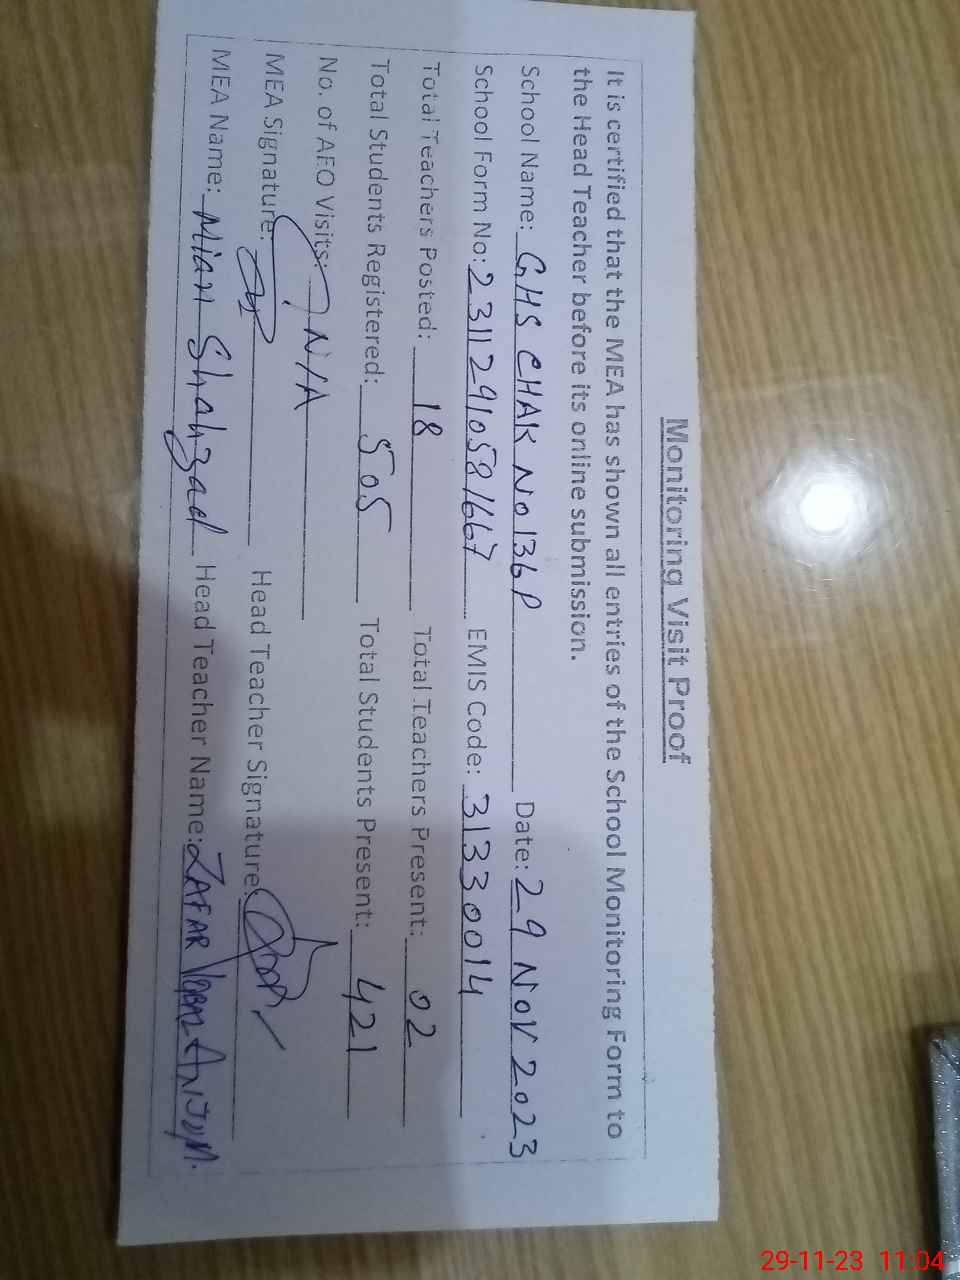 Monitoring Visit Proof
It is certified that the MEA has shown all entries of the School Monitoring Form to
the Head Teacher before its online submission.
School Name: GHS CHAK NO 136 P Date: 29 NOV 2023
School Form No: 23112910581667 EMIS Code: 31330014
Total Teachers Posted: 18 Total Teachers Present: 02
Total Students Registered: 505 Total Students Present: 421
No. of AEO Visits: N/A
MEA Signature: Head Teacher Signature:
MEA Name: Mian Shahzad Head Teacher Name: ZAFAR IQBAL ANJUM.
29-11-23 11:04